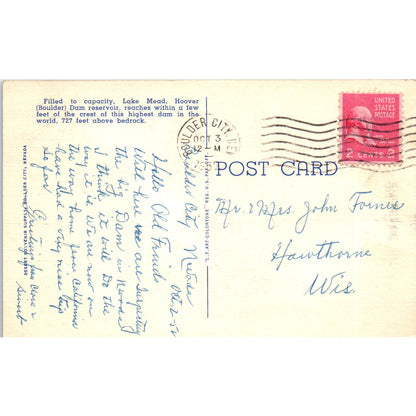 Filled to capacity, Lake Mead, Hoover
(Boulder) Dam reservoir, reaches within a few
feet of the crest of this highest dam in the
world, 727 feet above bedrock.
BOULDER CITY, NEV.
OCT 3
12 M
UNITED
STATES
POSTAGE
2 CENTS 2
POST CARD
Mr. & Mrs. John Fornes
Hawthorne
Wis.
Boulder City Nevada
Oct 2-52
Hello Old Friends
Well here we are Inspecting
the big Dam in Nevada
I think it will Do the
way it is we are now on
the way home from California
have had a very nice trip
so far
Greetings from